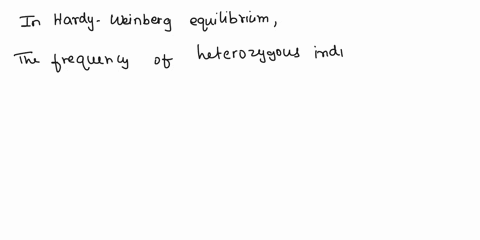 In Hardy-Weinberg equilibrium,
The frequency of heterozygous indi